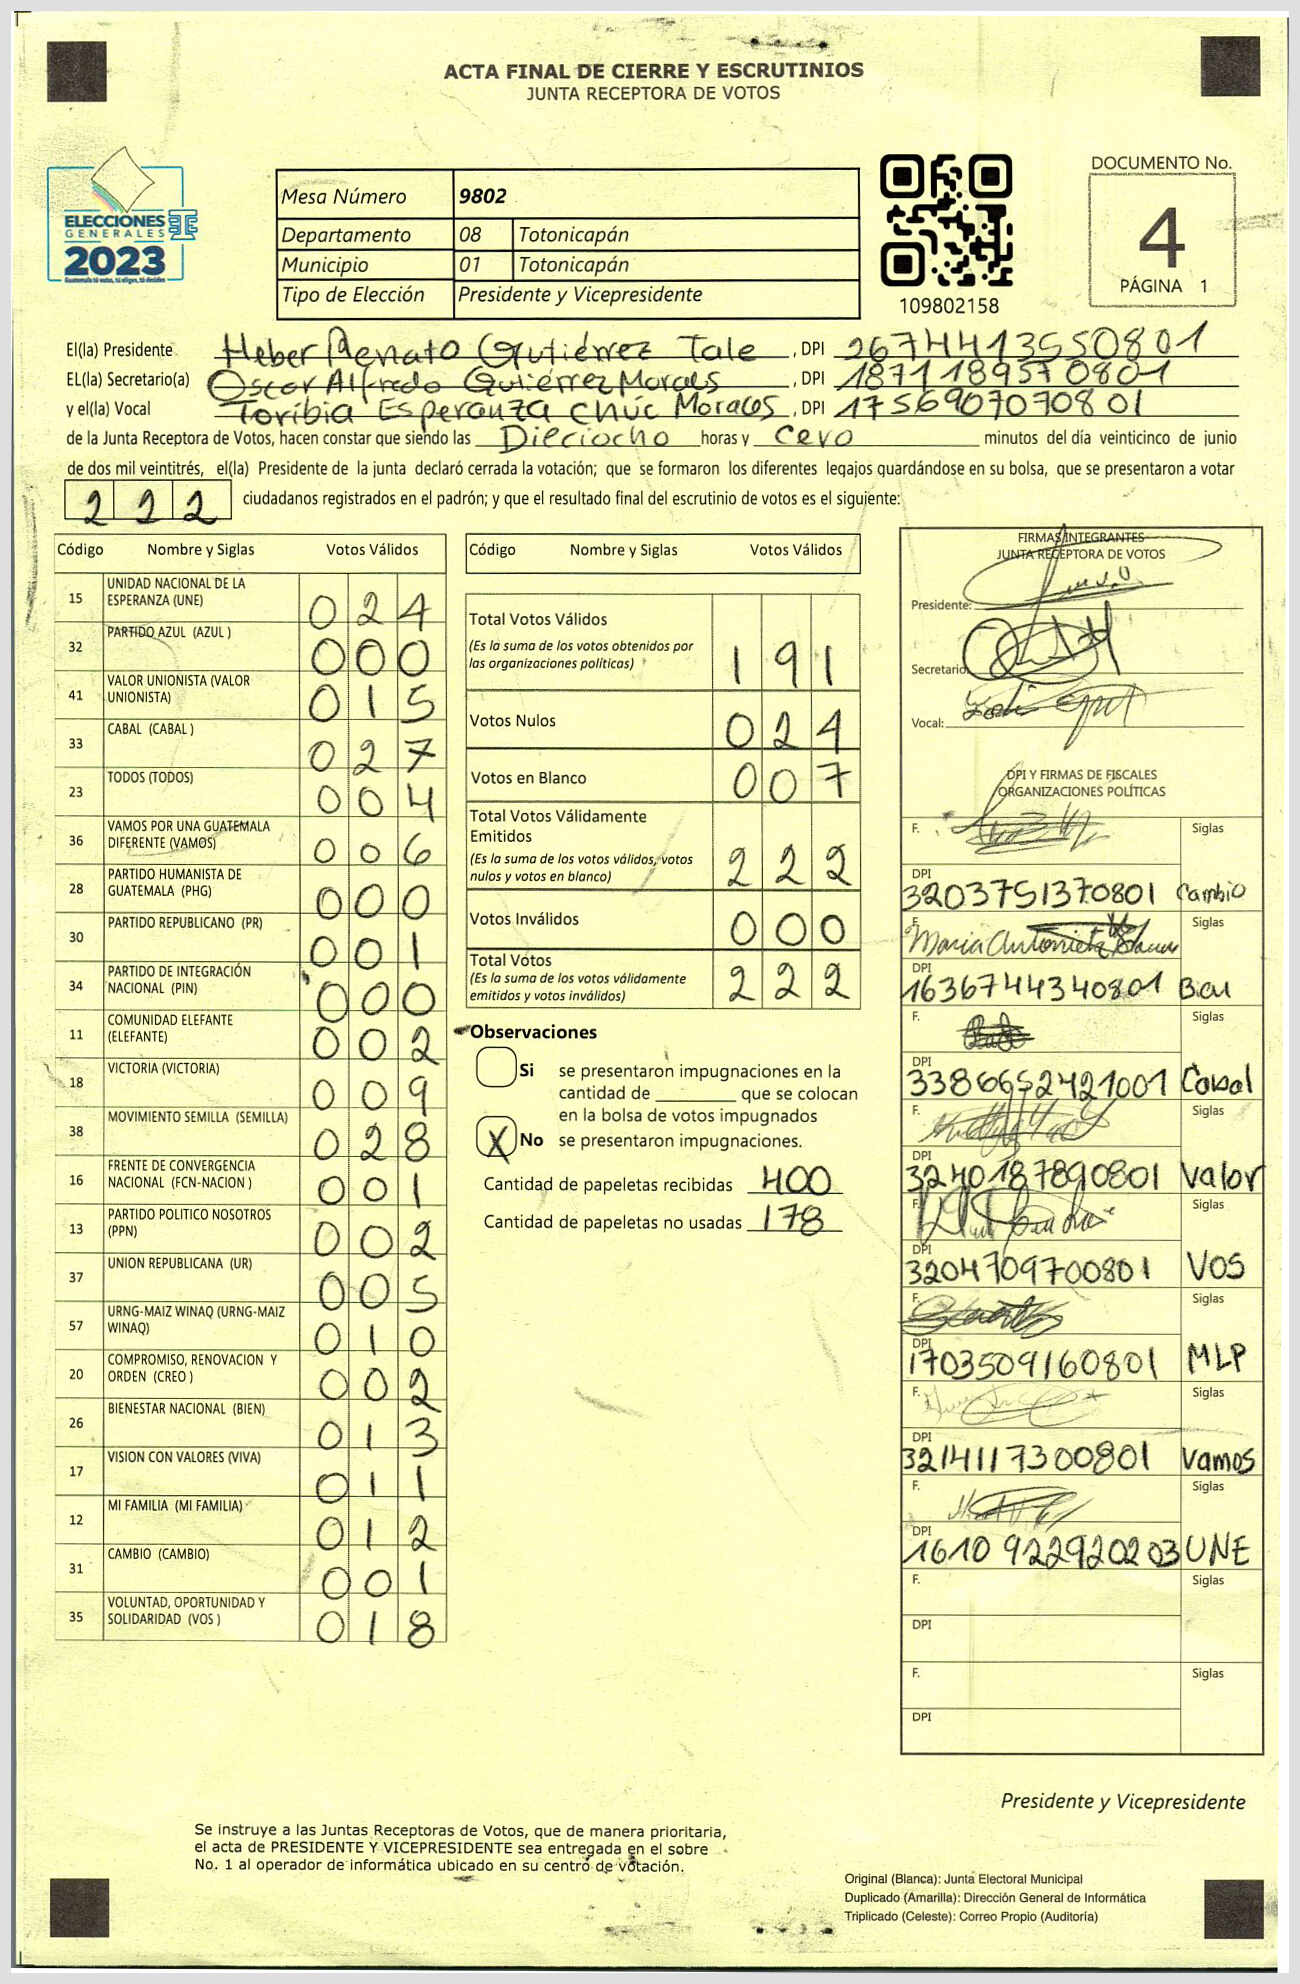 ACTA FINAL DE CIERRE Y ESCRUTINIOS
JUNTA RECEPTORA DE VOTOS
ELECCIONES
GENERALES
2023
Guatemala tú votas, tú eliges, tú decides
Mesa Número 9802
Departamento 08 Totonicapán
Municipio 01 Totonicapán
Tipo de Elección Presidente y Vicepresidente
109802158
DOCUMENTO No.
4
PÁGINA 1
El(la) Presidente Heber Renato Gutiérrez Tale , DPI 2674413550801
EL(la) Secretario(a) Oscar Alfredo Gutiérrez Morales , DPI 1871189570801
y el(la) Vocal Toribia Esperanza Chúc Morales , DPI 1756907070801
de la Junta Receptora de Votos, hacen constar que siendo las Dieciocho horas y cero minutos del día veinticinco de junio
de dos mil veintitrés, el(la) Presidente de la junta declaró cerrada la votación; que se formaron los diferentes legajos guardándose en su bolsa, que se presentaron a votar
222 ciudadanos registrados en el padrón; y que el resultado final del escrutinio de votos es el siguiente:
Código Nombre y Siglas Votos Válidos
15 UNIDAD NACIONAL DE LA ESPERANZA (UNE) 024
32 PARTIDO AZUL (AZUL ) 000
41 VALOR UNIONISTA (VALOR UNIONISTA) 015
33 CABAL (CABAL ) 027
23 TODOS (TODOS) 004
36 VAMOS POR UNA GUATEMALA DIFERENTE (VAMOS) 006
28 PARTIDO HUMANISTA DE GUATEMALA (PHG) 000
30 PARTIDO REPUBLICANO (PR) 001
34 PARTIDO DE INTEGRACIÓN NACIONAL (PIN) 000
11 COMUNIDAD ELEFANTE (ELEFANTE) 002
18 VICTORIA (VICTORIA) 009
38 MOVIMIENTO SEMILLA (SEMILLA) 028
16 FRENTE DE CONVERGENCIA NACIONAL (FCN-NACION ) 001
13 PARTIDO POLITICO NOSOTROS (PPN) 002
37 UNION REPUBLICANA (UR) 005
57 URNG-MAIZ WINAQ (URNG-MAIZ WINAQ) 010
20 COMPROMISO, RENOVACION Y ORDEN (CREO ) 002
26 BIENESTAR NACIONAL (BIEN) 013
17 VISION CON VALORES (VIVA) 011
12 MI FAMILIA (MI FAMILIA) 012
31 CAMBIO (CAMBIO) 001
35 VOLUNTAD, OPORTUNIDAD Y SOLIDARIDAD (VOS ) 018
Código Nombre y Siglas Votos Válidos
Total Votos Válidos 191
(Es la suma de los votos obtenidos por
las organizaciones políticas)
Votos Nulos 024
Votos en Blanco 007
Total Votos Válidamente
Emitidos 222
(Es la suma de los votos válidos, votos
nulos y votos en blanco)
Votos Inválidos 000
Total Votos 222
(Es la suma de los votos válidamente
emitidos y votos inválidos)
Observaciones
Si se presentaron impugnaciones en la
cantidad de ________ que se colocan
en la bolsa de votos impugnados
X No se presentaron impugnaciones.
Cantidad de papeletas recibidas 400
Cantidad de papeletas no usadas 178
FIRMAS INTEGRANTES
JUNTA RECEPTORA DE VOTOS
Presidente:
Secretario
Vocal:
DPI Y FIRMAS DE FISCALES
ORGANIZACIONES POLÍTICAS
F. Siglas
DPI
3203751370801 Cambio
F. Maria Antonieta Siglas
DPI
1636744340801
F. Siglas
DPI
3386652421001 Cabal
F. Siglas
DPI
3240187890801 Valor
F. Siglas
DPI
3204709700801 VOS
F. Siglas
DPI
1703509160801 MLP
F. Siglas
DPI
3214117300801 Vamos
F. Siglas
DPI
1610 922920203 UNE
F. Siglas
DPI
F. Siglas
DPI
Presidente y Vicepresidente
Se instruye a las Juntas Receptoras de Votos, que de manera prioritaria,
el acta de PRESIDENTE Y VICEPRESIDENTE sea entregada en el sobre
No. 1 al operador de informática ubicado en su centro de votación.
Original (Blanca): Junta Electoral Municipal
Duplicado (Amarilla): Dirección General de Informática
Triplicado (Celeste): Correo Propio (Auditoría)